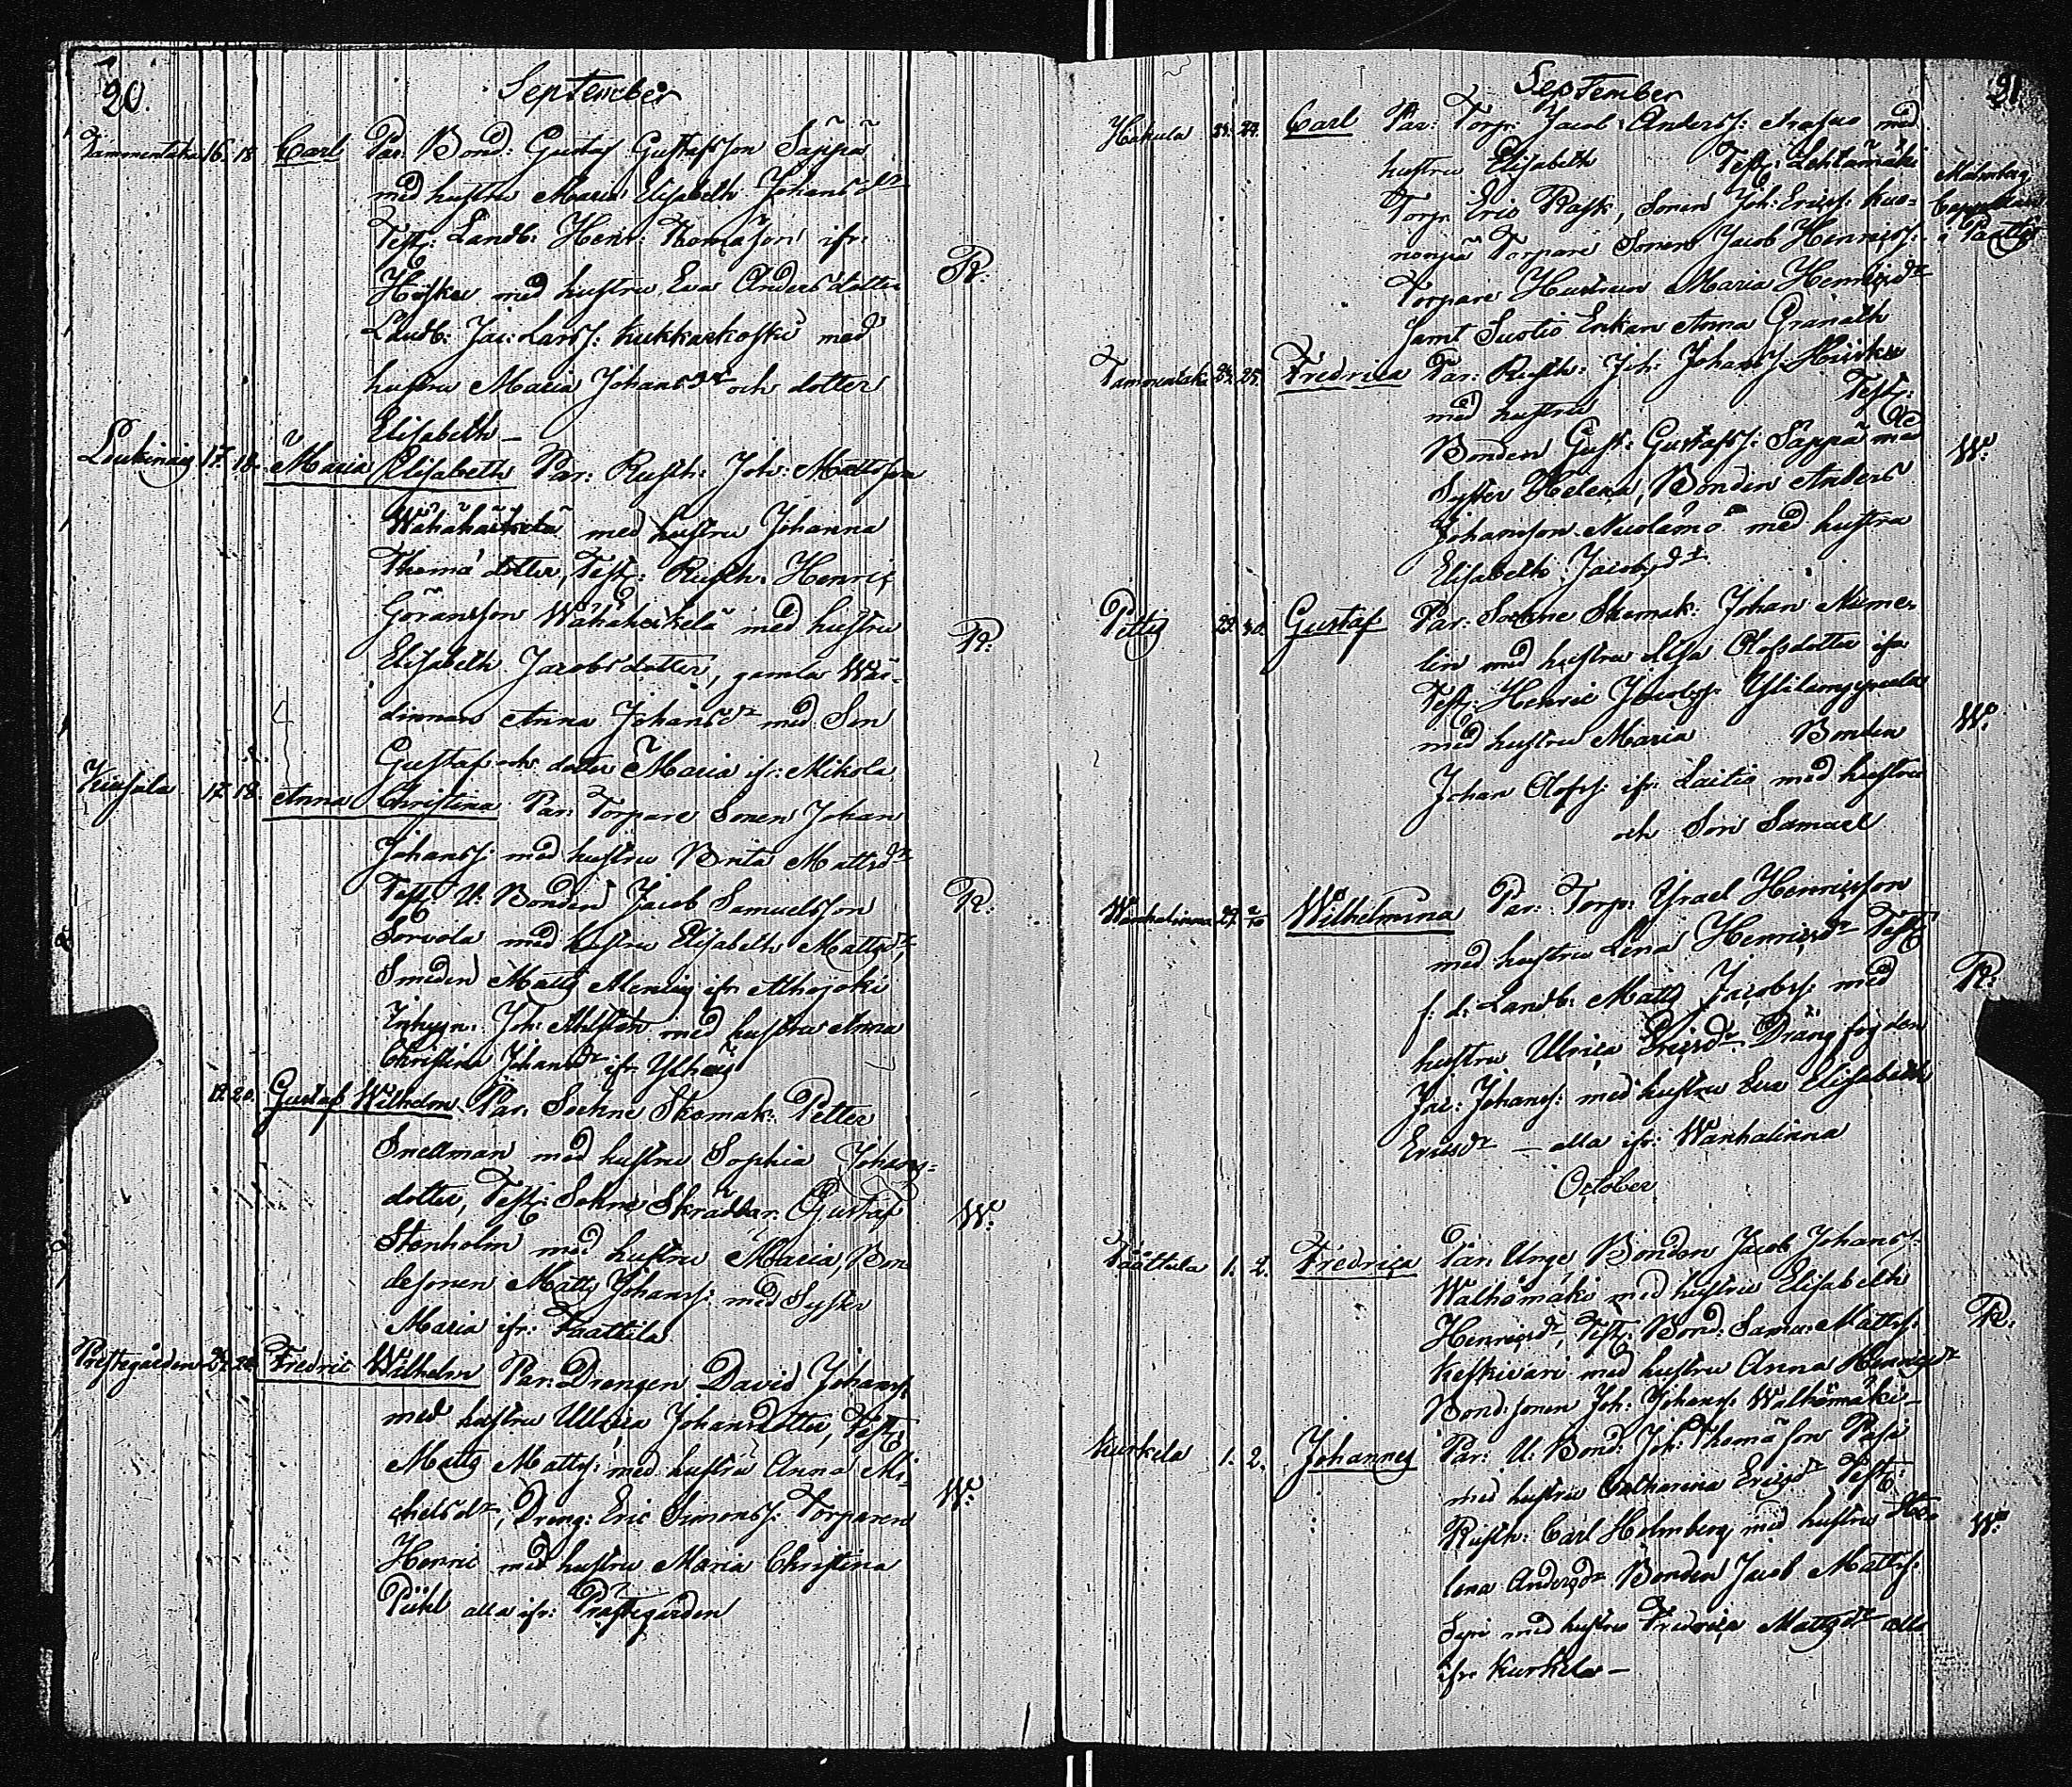 20.
September
Tammentaka 16. 18. Carl Par. Bond: Gustaf Gustafsson Säppä
med hustru Maria Elisabeth Johansdr
Test: Landb: Henr: Thomasson ifr:
Heisku med hustru Eva Andersdotter
R.
Landb: Jac: Larss: Kukkarkoski med
hustru Maria Johansdr och dotter
Elisabeth –
17. 18. Maria Elisabeth Par: Rusth: Joh: Mattsson
Wähäheikelä med hustru Johanna
Thomä dotter, Test: Rusth. Henric
Göransson Wähäheikelä med hustru
R.
Elisabeth Jacobsdotter, gamla Wär-
dinnan Anna Johansdr med Son
Gustaf och dotter Maria ifr: Mikola
17. 18. Anna Christina Par: Torpare Sonen Johan
Johanss: med hustru Brita Mattsdr
Test: U: Bonden Jacob Samuelsson
R.
Sorvola med hustru Elisabeth Mattsdr,
Smeden Matts ifr Alhojoki
Joh: Ahlsten med hustru Anna
Christina Johansdr ifr
19. 20. Gustaf Wilhelm Par: Sockne Skomak: Petter
Snellman med hustru Sophia Johans-
dotter, Test: Sockne Skräddar: Gustaf
W.
Stenholm med hustru Maria, Bon-
desonen Matts Johanss: med Syster
Maria ifr: Paattila
Prestegården 20. Fredric Wilhelm Par: Drengen David Johanss:
med hustru Ulrica Johansdotter, Test:
Matts Mattss: med hustru Anna Mi-
W.
chelsdr, Dreng: Eric Simonss: Torparen
Henric med hustru Maria Christina
Pihl alla ifr: Prästegården
21
September
Hakula 24. Carl Par: Torp: Jacob Anderss: med
hustru Elisabeth Test: Lehtämäki
Malmberg
Torp: Eric Rask, Sonen Joh: Ericss: Kuo-
Cappellan
Torpare Sonen Jacob Henricss:
i Paattis
Torpare Hustrun Maria Henricsdr
samt Enkan Anna Granath
Tammentaka 24. 25. Fredrica Par: Rusth: Joh: Johanss: Heisku
med hustru Test:
Bonden Gust: Gustafss: Säppä med
W.
Syster Helena, Bonden Anders
Johansson med hustru
Elisabeth Jacobsdr
29. 30. Gustaf Par: Sockne Skomak: Johan Nume-
lin med hustru Lisa Olofsdotter ifr
Test: Henric Jacobss:
med hustru Maria Bonden
W.
Johan Olofss: ifr: Laitio med hustru
och Son Samuel
Wanhalinna 29. 2/10 Wilhelmina Par: Torp: Israel Henricsson
med hustru Lena Henricsdr Test:
f: d: Landb: Matts Jacobss: med
R.
hustru Ulrica Ericsdr Drängfogden
Jac: Johanss: med hustru Eva Elisabeth
Ericsdr – alla ifr: Wanhalinna
October
1. 2. Fredrica Par: Unge Bonden Jacob Johanss:
Walhämäki med hustru Elisabeth
Henricsdr, Test: Bond: Sam: Mattss:
R.
Keskivari med hustru Anna Henricsdr
Bond: sonen Joh: Johanss: Walhämäki –
Kurkela 1. 2. Johannes Par: U: Bond: Joh: Thomäson Pasi
med hustru Catharina Ericsdr Test:
Rusth: Carl Holmberg med hustru He-
W.
lena Andersdr Bonden Jacob Mattss:
med hustru Fredrica Mattsdr alla
ifr Kurkela –